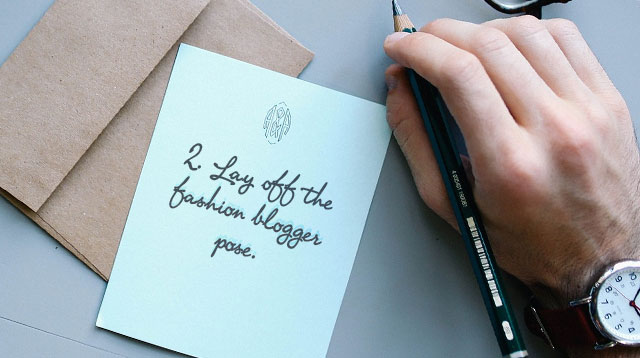 2. Lay off the
fashion blogger
pose.